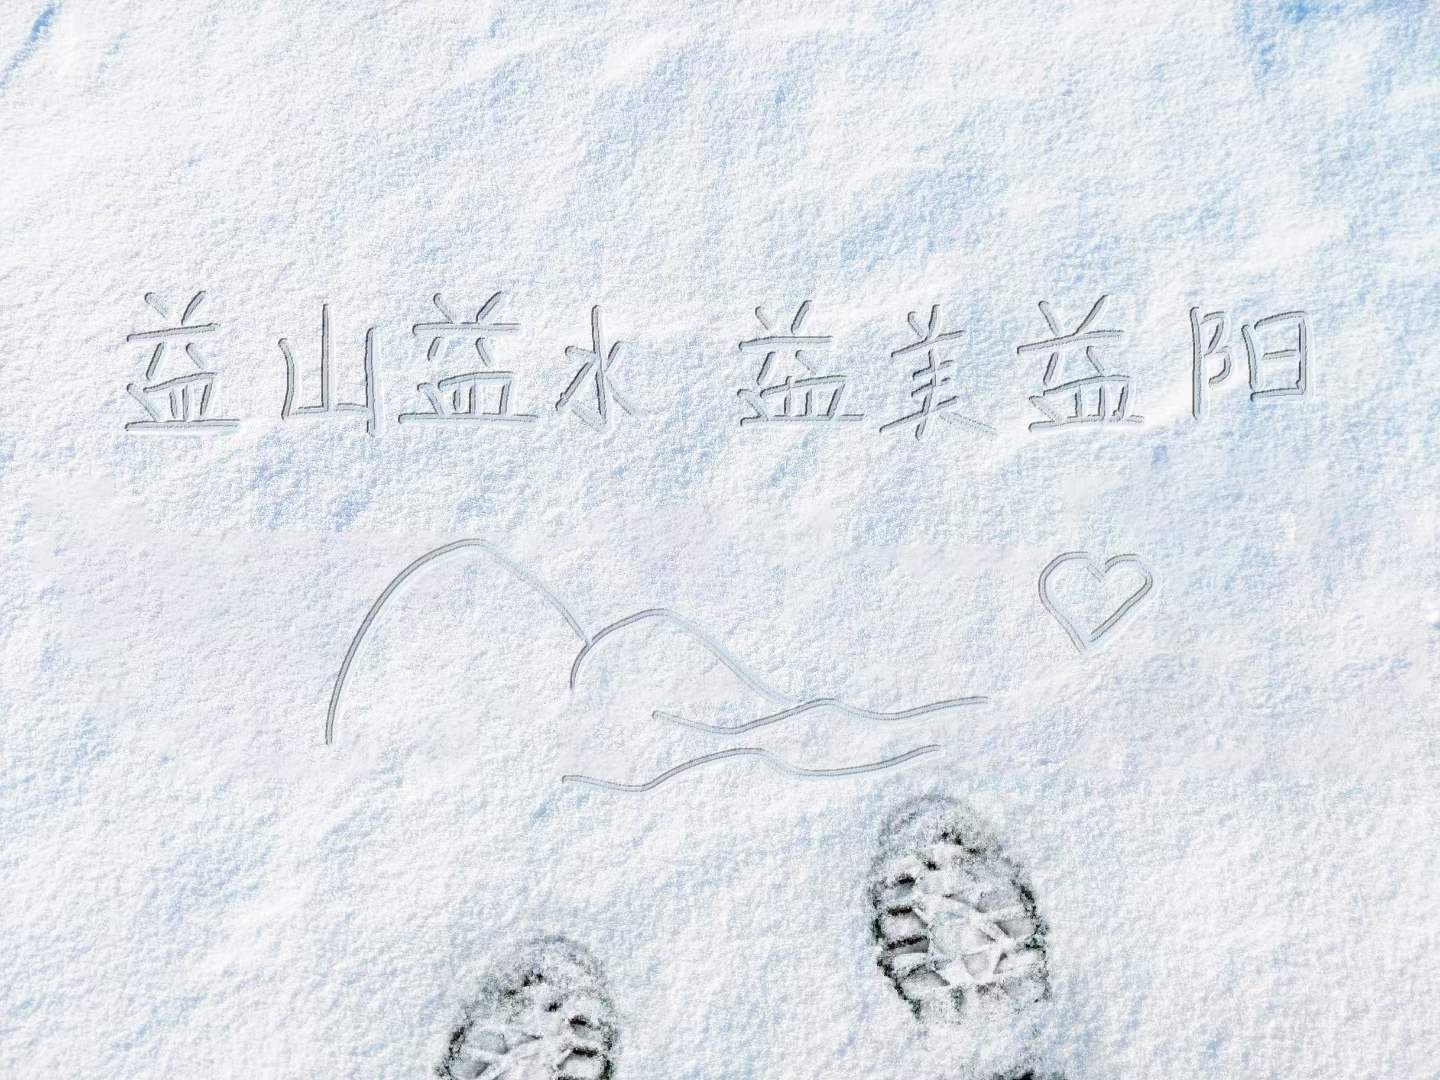 益山益水 益美益阳